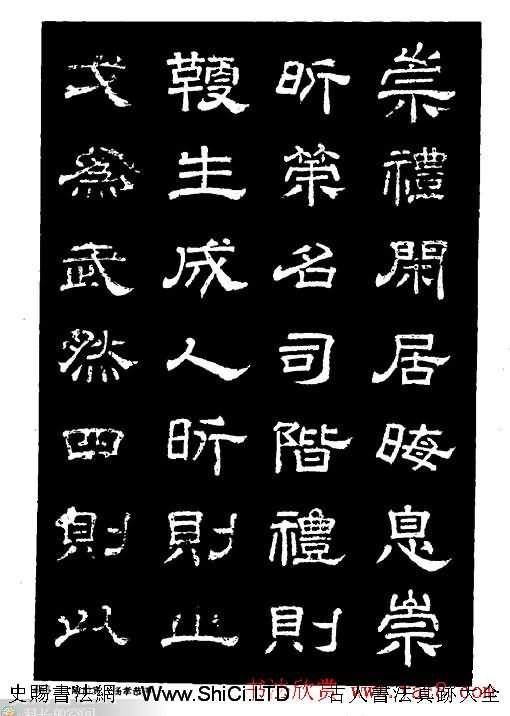 崇禮閑居晦息崇
昕策名司階禮則
鞭生成人昕則止
戈為武然四則以
史賜書法網 Www.ShiCi.LTD 古人書法真跡大全
书法欣赏